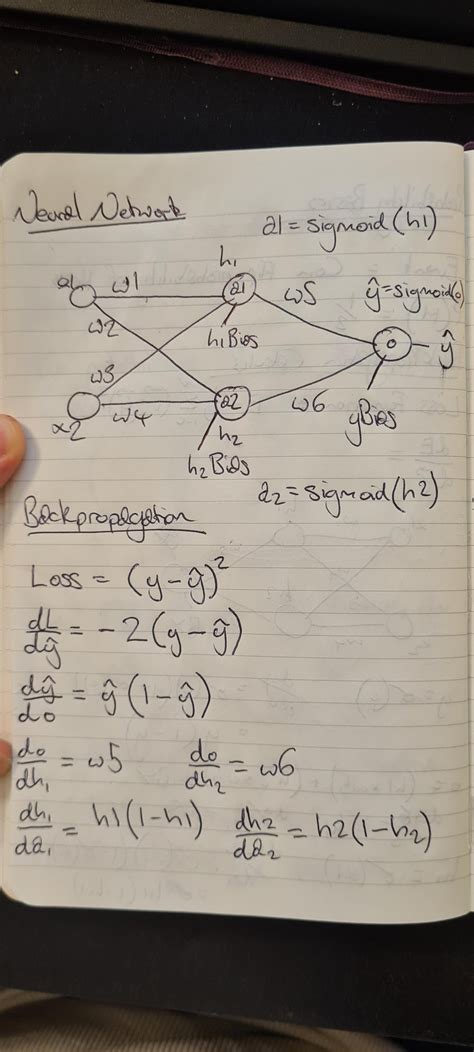 Neural Network
a1 = sigmoid(h1)
h1
w1
a1
w5
ŷ = sigmoid(o)
w2
h1Bias
o
ŷ
w3
x2
w4
a2
w6
yBias
h2
h2Bias
a2 = sigmoid(h2)
Backpropagation
Loss = (y - ŷ)²
dL/dŷ = -2(y - ŷ)
dŷ/do = ŷ(1 - ŷ)
do/dh1 = w5 do/dh2 = w6
dh1/da1 = h1(1-h1) dh2/da2 = h2(1-h2)